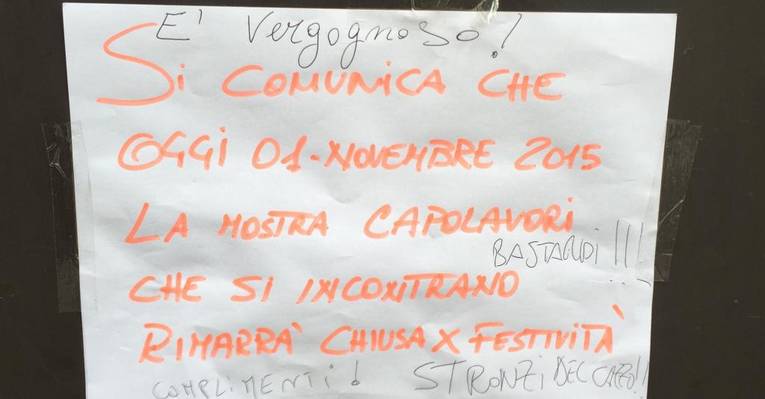 E' Vergognoso!
Si COMUNICA CHE
OGGi 01-NOVEMBRE 2015
LA MOSTRA CAPOLAVORI
BASTARDi !!!
CHE SI INCONTRANO
RIMARRÀ CHIUSA X FESTIVITÀ
COMPLIMENTI! STRONZi DEL CAZZO!!